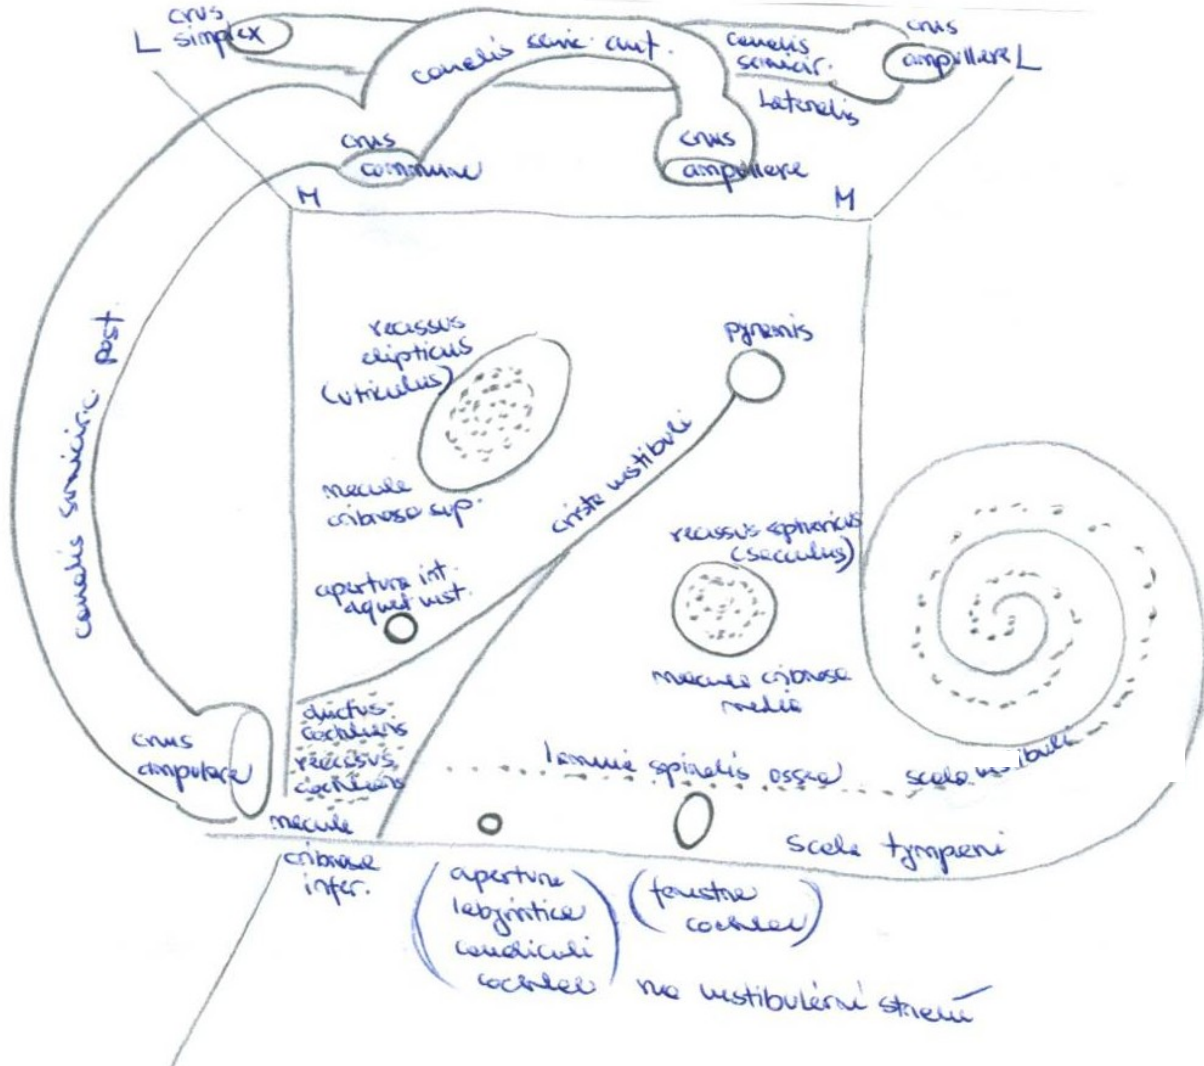 crus
simplex
L
canalis semic. ant.
canalis
semicir.
Lateralis
crus
ampullare
L
crus
commune
crus
ampullare
M
M
canalis semicirc. post.
recessus
elipticus
(utriculus)
macula
cribrosa sup.
pyramis
crista vestibuli
recessus sphericus
(sacculus)
apertura int.
aquae vest.
macula cribrosa
media
ductus
cochlearis
recessus
cochlearis
macula
cribrosa
infer.
crus
ampulare
lamina spiralis ossea
scala vestibuli
scala tympani
(apertura
labyrintica
canaliculi
cochleae)
(fenestra
cochleae)
na vestibulární straně